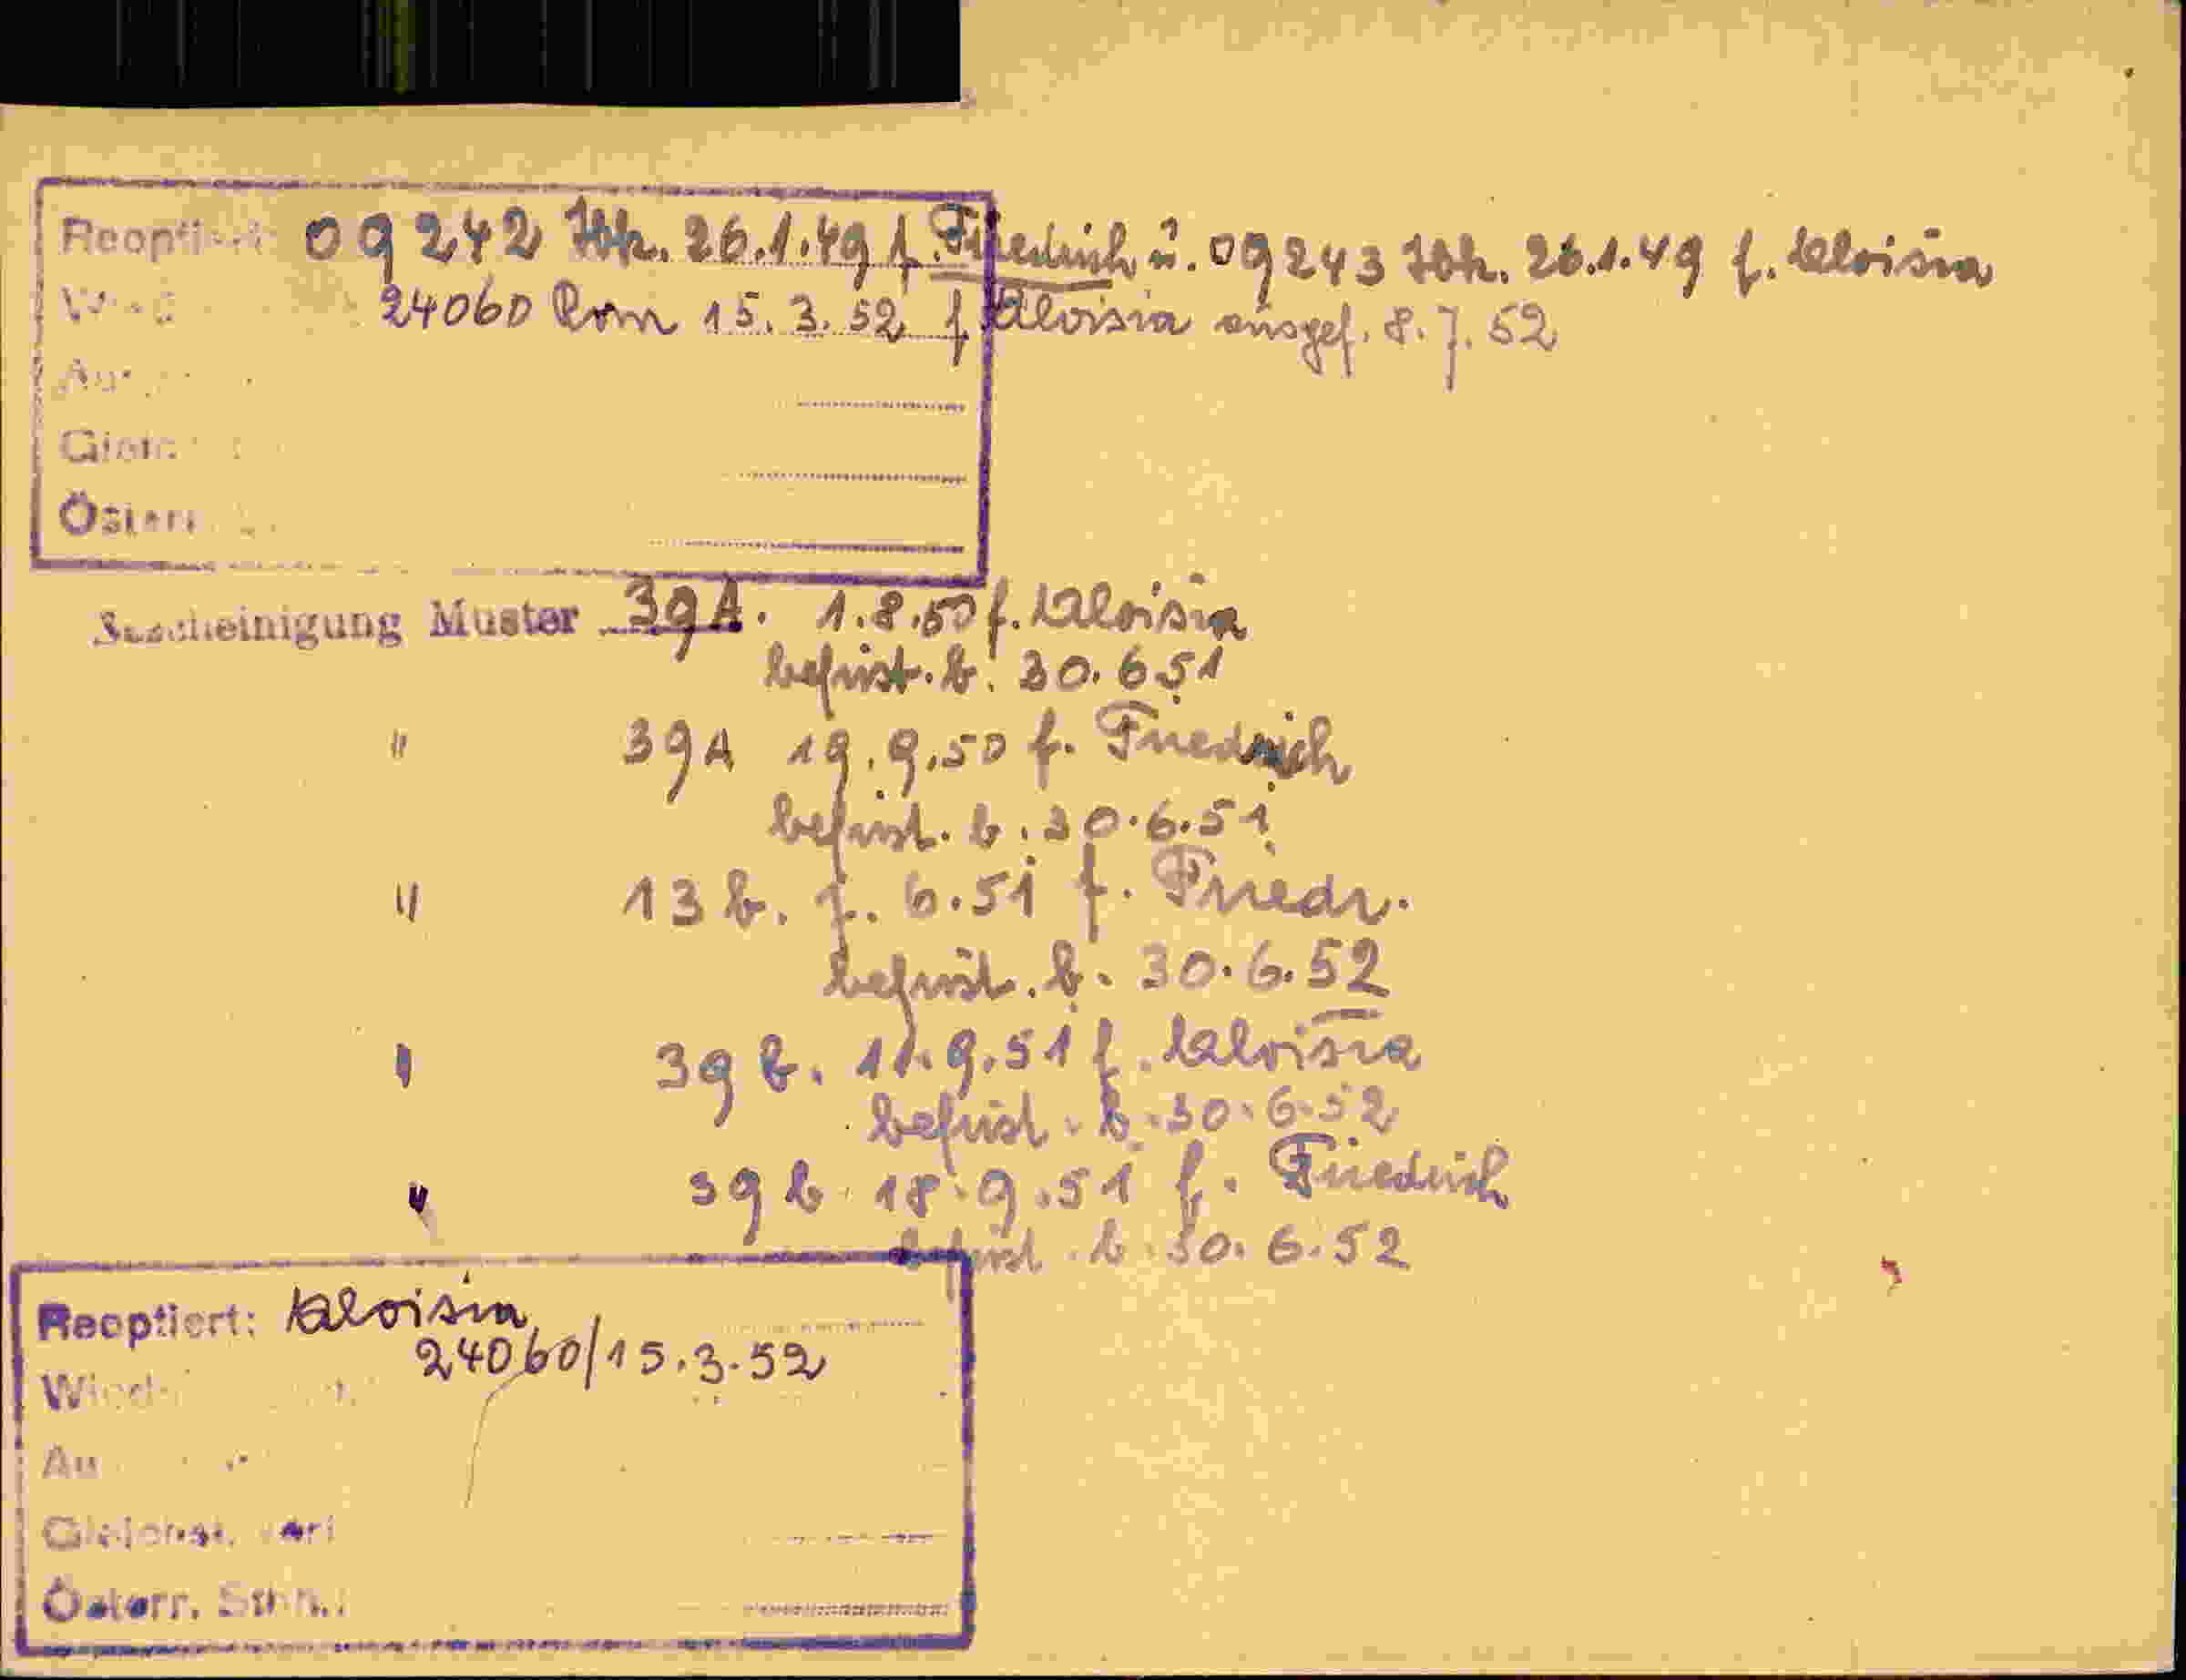 Reoptiert: 09242 Ibk. 26.1.49 f. Friedrich u. 09243 Ibk. 26.1.49 f. Aloisia
24060 Rom 15.3.52 f. Aloisia ausgef. 8.7.52
Österr.
Bescheinigung Muster 39A. 1.8.50 f. Aloisia
befrist. b. 30.6.51
" 39A 19.9.50 f. Friedrich
befrist. b. 30.6.51
" 13 b. 7.6.51 f. Friedr.
befrist. b. 30.6.52
" 39 b. 11.9.51 f. Aloisia
befrist. b. 30.6.52
" 39 b. 18.9.51 f. Friedrich
befrist. b. 30.6.52
Reoptiert: Aloisia
24060/15.3.52
Gleichst.
Österr.